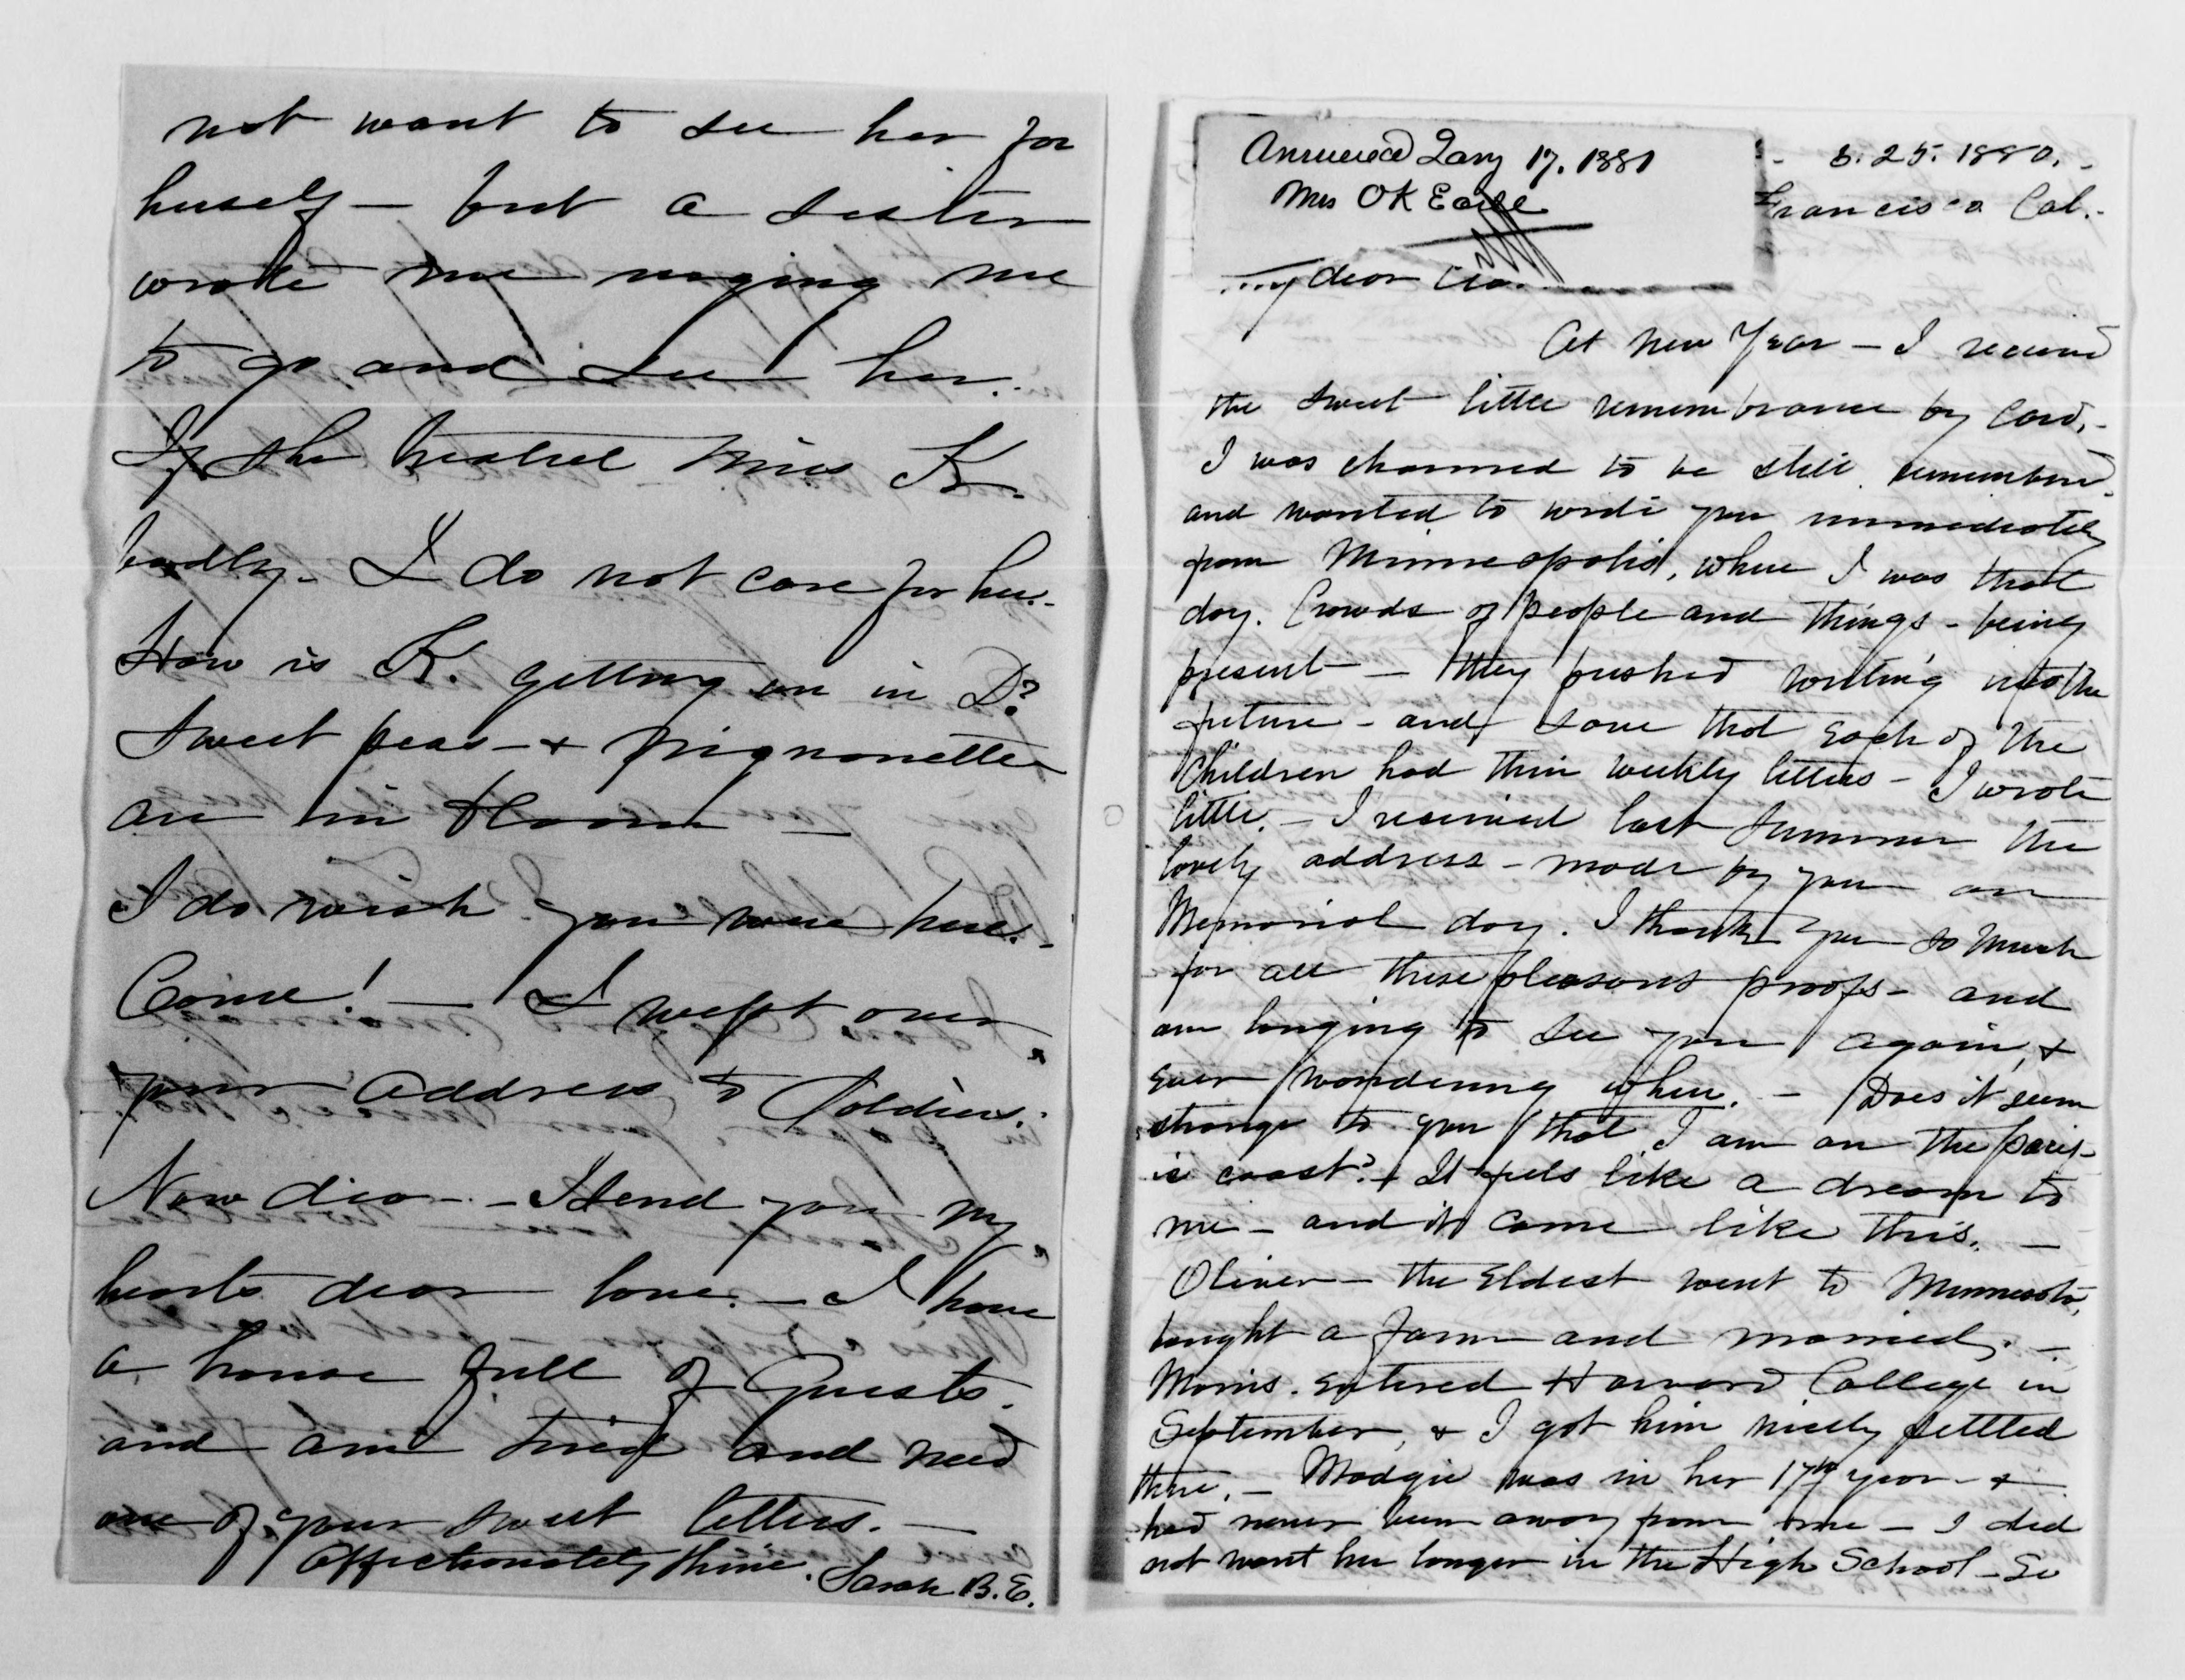 not want to see her for
herself — but a sister
wrote me urging me
to go and see her.
If she treated Miss K.
badly — I do not care for her.
How is K. getting on in D?
Sweet peas — & mignonette
are in bloom —
I do wish you were here. —
Come! — I wept over
your address to Soldiers.
Now dear — I send you my
hearts dear love. — I have
a house full of Guests.
and am tired and need
one of your sweet letters. —
Affectionately thine. Sarah B. E.
Answered Jany 17. 1881
Mrs OK Earle
25. 1880. -
Francisco Cal. -
dear
At New Year — I received
the sweet little remembrance by card. -
I was charmed to be still remembered.
and wanted to write you immediately
from Minneapolis, where I was that
day. Crowds of people and things - being
present — they pushed writing into the
future - and save that each of the
Children had their weekly letters - I wrote
little. — I received last Summer the
lovely address - made by you on
Memorial day. I thank you so much
for all these pleasant proofs - and
am longing to see you again, &
ever wondering when. — Does it seem
strange to you that I am on the pacif-
ic coast? It feels like a dream to
me - and it came like this. —
Oliver — the Eldest went to Minnesota,
bought a farm and married. —
Morris. entered Harvard College in
September, & I got him nicely settled
there. — Madgie was in her 17th year - &
had never been away from me — I did
not want her longer in the High School - So